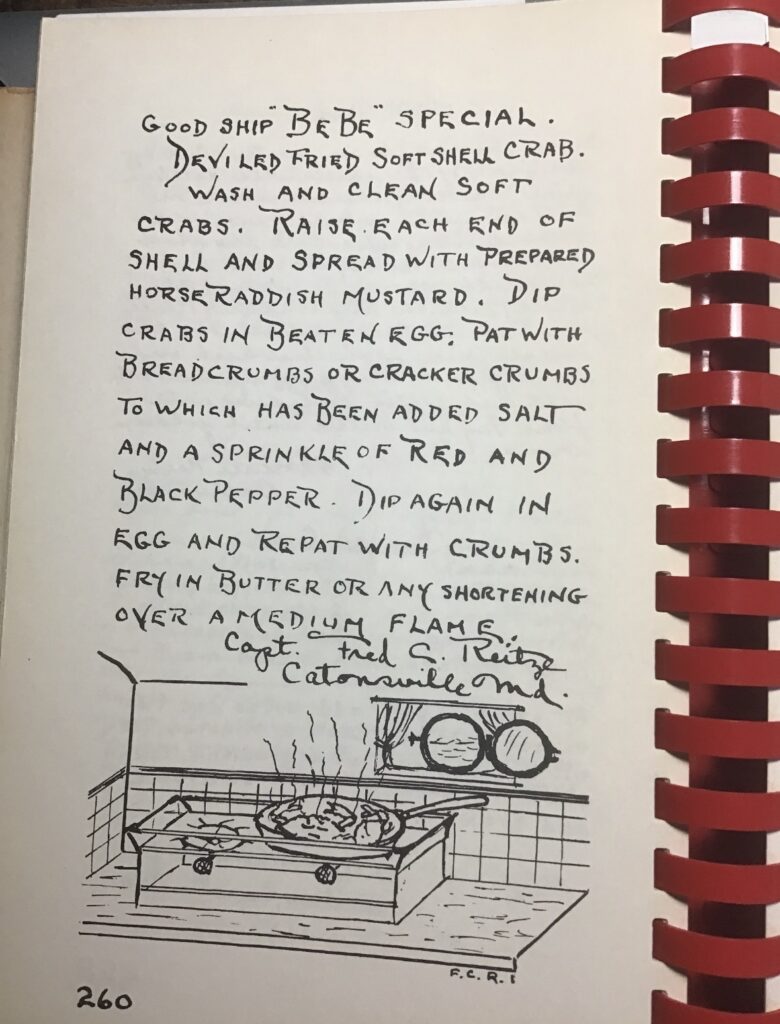 GOOD SHIP "BEBE" SPECIAL.
DEVILED FRIED SOFT SHELL CRAB.
WASH AND CLEAN SOFT
CRABS. RAISE EACH END OF
SHELL AND SPREAD WITH PREPARED
HORSERADDISH MUSTARD. DIP
CRABS IN BEATEN EGG. PAT WITH
BREADCRUMBS OR CRACKER CRUMBS
TO WHICH HAS BEEN ADDED SALT
AND A SPRINKLE OF RED AND
BLACK PEPPER. DIP AGAIN IN
EGG AND REPAT WITH CRUMBS.
FRY IN BUTTER OR ANY SHORTENING
OVER A MEDIUM FLAME.
Capt. Fred C. Reitze
Catonsville Md.
F.C.R.
260